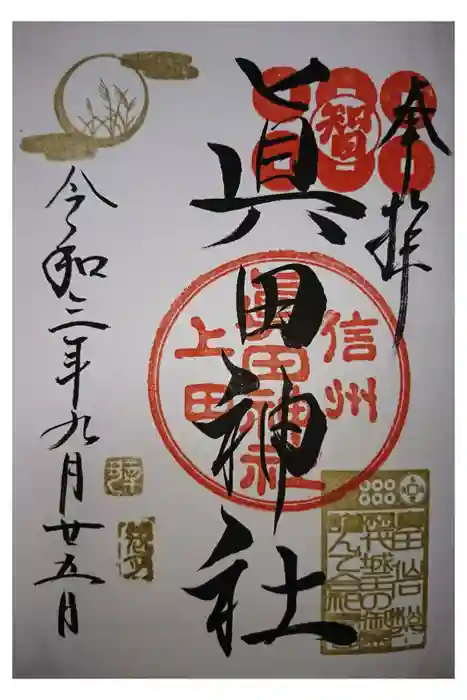 奉拝
智
眞田神社
信州
眞田神社
上田
令和三年九月廿五月